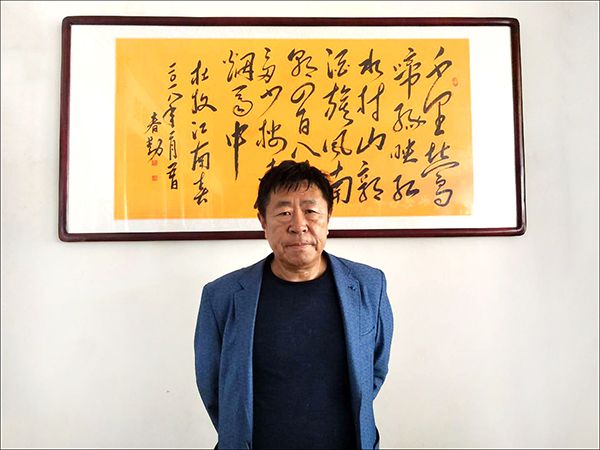 千里鶯
啼綠映紅
水村山郭
酒旗風南
朝四百八
多少樓台
烟雨中
杜牧江南春
二〇一八年
春